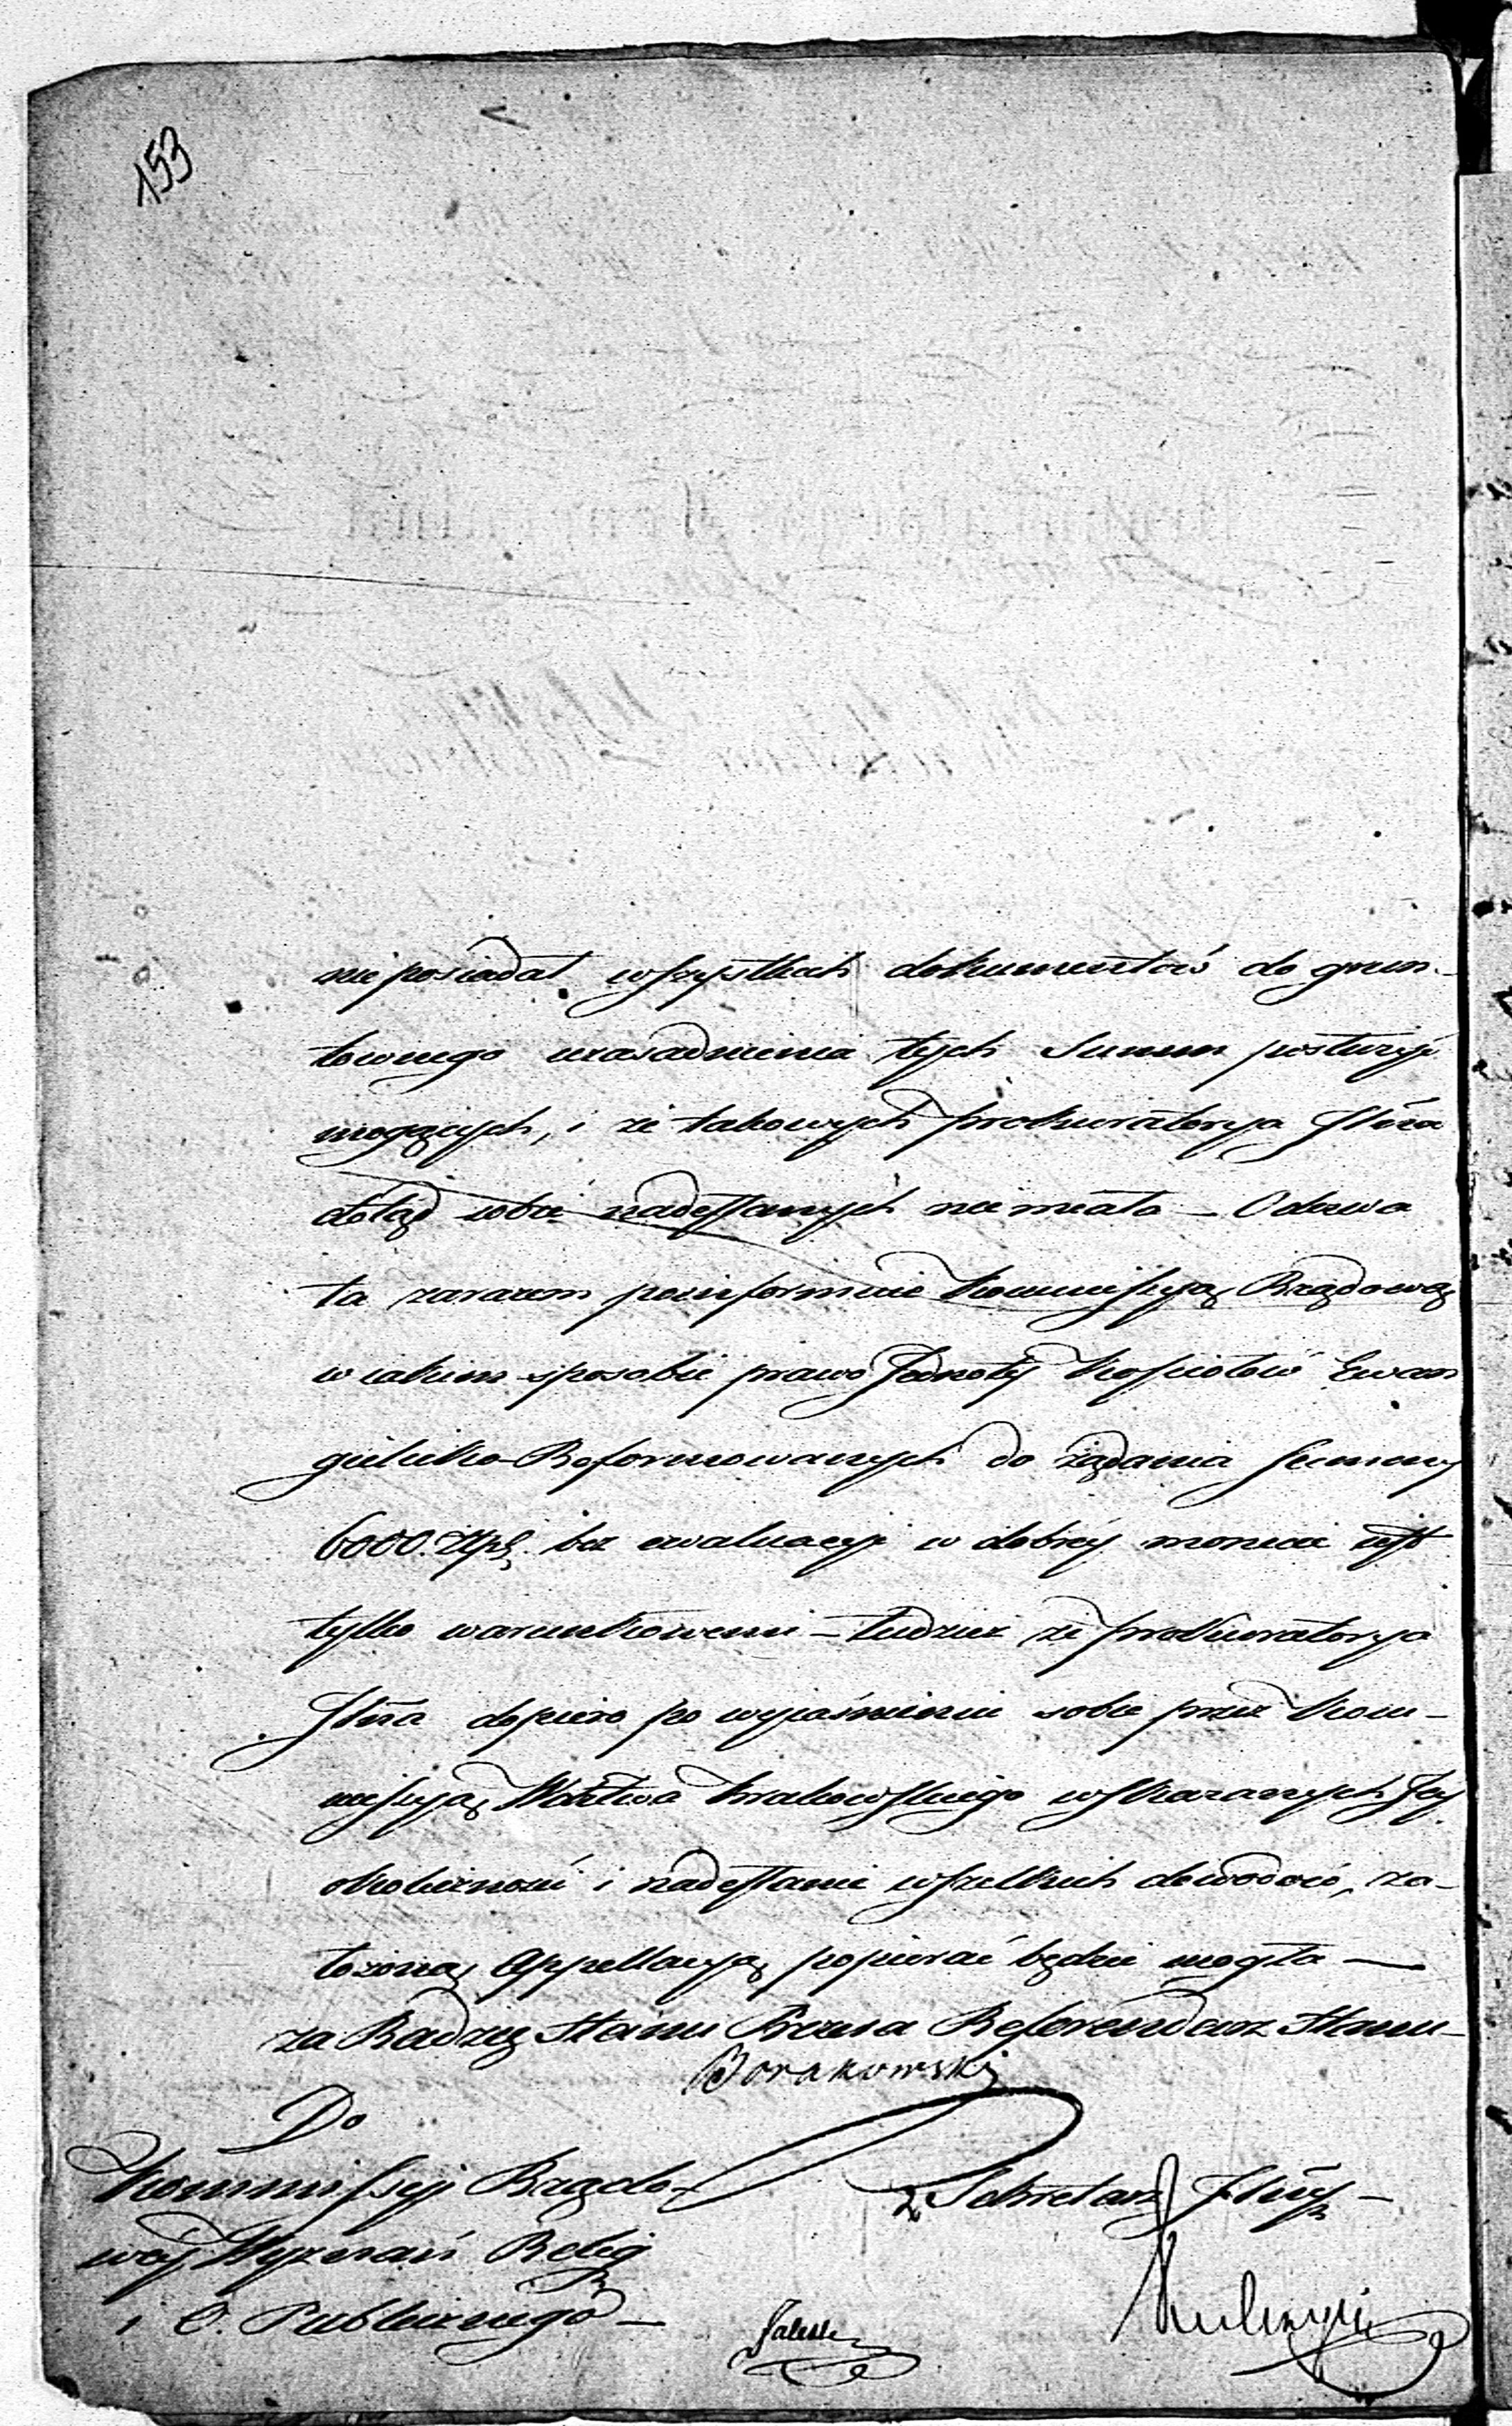 153
nie posiadał wszystkich dokumentów do grun-
townego uzasadnienia tych Summ posłużyć
mogących, i że takowych prokuratorya Jlna
dotąd sobie nadesłanych nie miała – Odezwa
ta zarazem poinformuie Kommissyą Rządową
w iakim sposobie prawo Jednoty Kościołów Ewan
gielicko-Reformowanych do żądania Summy
6000. Złpl. bez ewaluacyi w dobrey monecie iest
tylko warunkowem – tudzież że prokuratorya
Jlna dopiero po wyiaśnieniu sobie przez Kom-
missyą Wdztwa Krakowskiego wskazanych Jey
okoliczności i nadesłanie wszelkich dowodów, za-
łożoną Appellacyą popierać będzie mogła —
za Radzcę Stanu Prezesa Referendarz Stanu
Borakowski
Do
Kommissyi Rządo-
wey Wyznań Relig
i O. Publicznego –
z. Sekretarz Jlny –